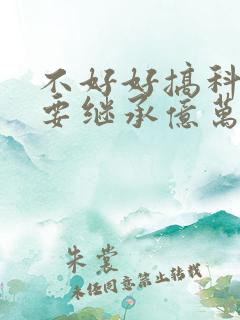 不好好搞科
要继承億萬
朱裳
未经同意禁止转载